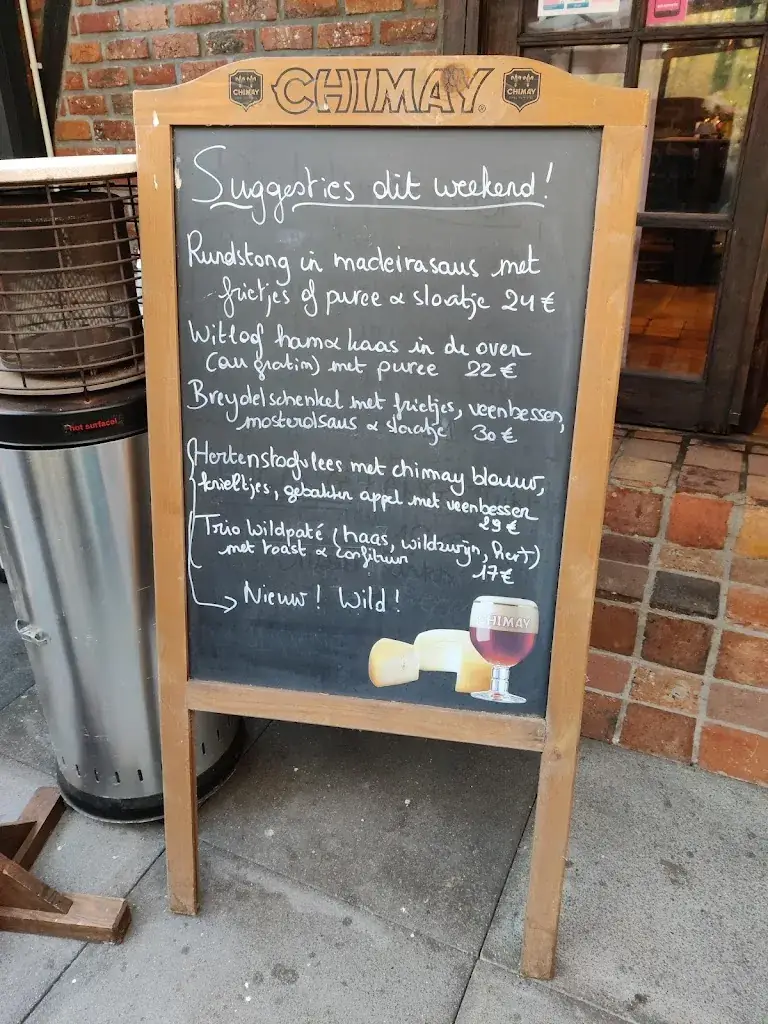 CHIMAY
CHIMAY®
CHIMAY
Suggesties dit weekend!
Rundstong in madeirasaus met
frietjes of puree & slaatje 24€
Witlof ham & kaas in de oven
(au gratin) met puree 22€
Breydelschenkel met frietjes, veenbessen,
mosterdsaus & slaatje 30€
Hertenstoofvlees met chimay blauw,
krieltjes, gebakken appel met veenbessen
29€
Trio Wildpaté (haas, wildzwijn, hert)
met toast & confituur 17€
Nieuw! Wild!
CHIMAY
hot surface!